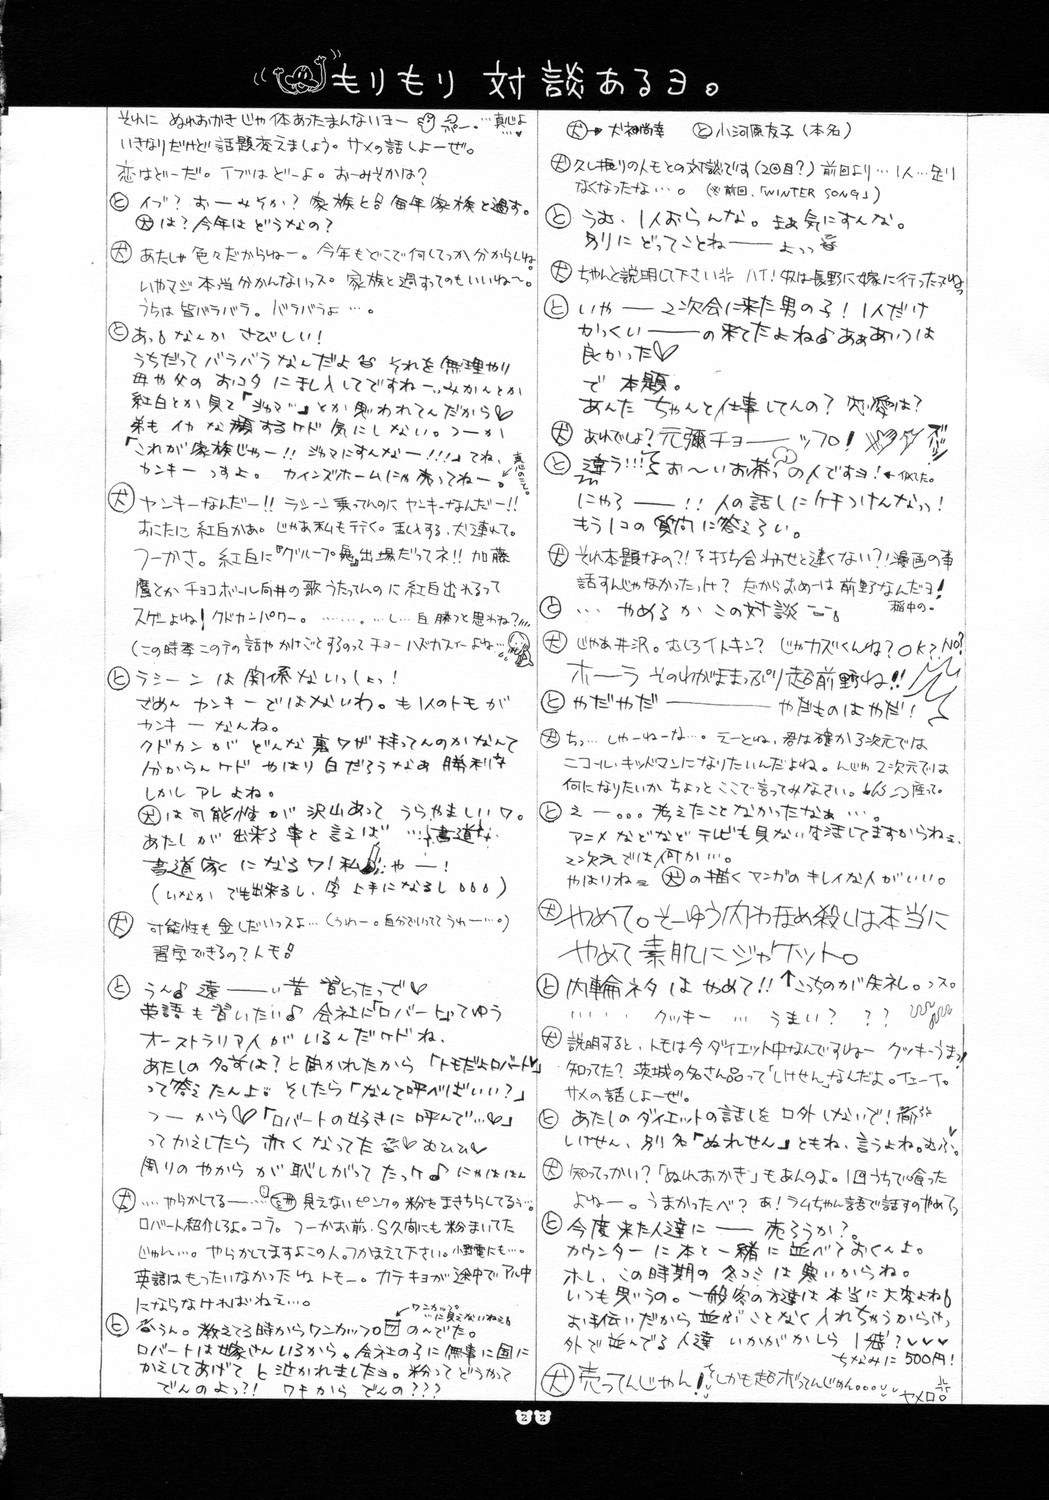 もりもり 対談あるヨ。
犬→犬神尚幸 と小河原友子(本名)
犬 久し振りのトモとの対談です(2回目?)前回より…1人…足り
なくなったな…。(※前回、「WINTER SONG」)
と うむ、1人おらんな。まぁ気にすんな。
別にどってことねーーよっっ
犬 ちゃんと説明して下さい ハイ!奴は長野に嫁に行ったんよねっ
と いやー 2次会に来た男の子!1人だけ
かっくいーーの来てたよね♪あぁあいつは
良かった♡
で 本題。
あんた ちゃんと仕事してんの?恋愛は?
犬 あれでしょ?元彌チョーーップ!
と 違う!!! おーいお茶の人ですヨ!←似てた。
にゃろーー!!人の話しにケチつけんなっ!
もう1コの質問に答えろい。
犬 それ本題なの?!打ち合わせと違くない?!漫画の事
話すんじゃなかったっけ?だからおめーは前野なんだヨ!
稲中の。
と … やめるか この対談
犬 じゃあ井沢。むしろイトキン?じゃカズくんね?OK? NO?
ホーラ そのわがままっぷり超前野ね!!
と やだやだーーーやだものはやだ!
犬 ちっ… しゃーねーな…。えーとね、君は確か3次元では
ニコール・キッドマンになりたいんだよね。んじゃ2次元では
何になりたいか ちょっとここで言ってみなさい。座って。
と えー…。考えたことなかったなぁ…。
アニメなどなどテレビも見ない生活してますからねぇ、
2次元では何か…。
やはりねぇ 犬の描くマンガのキレイな人がいい。
犬 やめて。そーゆう内わなめ殺しは本当に
やめて素肌にジャケット。
と 内輪ネタはやめて!!↑こっちのが失礼。っス。
…… クッキー … うまい? ??
犬 説明すると、トモは今ダイエット中なんですねー クッキーうまっ!
知ってた?茨城の名さん品って「しけせん」なんだよ。イェーイ。
サメの話しよーぜ。
と あたしのダイエットの話しを口外しないで!
しけせん、別名「ぬれせん」ともね、言うよね。むふ♡
犬 知ってっかい?「ぬれおかき」もあんのよ。1回うちで食った
よねー。うまかったべ?あ!ラムちゃん語で話すのやめてっ
と 今度来た人達に ーー 売ろうか?。
カウンターに本と一緒に並べておくんよ。
ホレ、この時期の冬コミは寒いからね。
いつも思うの。一般客の方達は本当に大変よね
お手伝いだから並ぶことなく入れちゃうからさ
外で並んでる人達 いかがかしら 1個?♡♡♡
ちなみに500円!
犬 売ってんじゃん!しかも超ボってんじゃん。。。
ヤメロ。
それに ぬれおかきじゃ体あったまんないヨー …真心よ
いきなりだけど話題変えましょう。サメの話しよーぜ。
恋はどーだ。イブはどーよ。おーみそかは?
と イブ?おーみそか?家族と 毎年家族と過す。
犬は?今年は どうなの?
犬 あたしゃ色々だからねー。今年もどこで何してっか分からしね。
いやマジ本当分かんないっス。家族と過すってのもいいね〜。
うちは皆バラバラ。バラバラよ…。
と あっ なんか さびしい!
うちだってバラバラなんだよ それを無理やり
母や父のおコタにまし
入してですねー…みかんとか
紅白とか見て「ジャマ」とか思われてんだから♡
弟もイヤな顔するケド気にしない。つーか
「これが家族じゃー!!ジャマにすんなー!!!」てね、
カンキーっすよ。カインズホームにゃ売ってねー。
真心のこと。
犬 ヤンキーなんだー!!ラシーン乗ってんのにヤンキーなんだー!!
おこたに紅白かあ。じゃあ私も行く。犬連れて。
つーかさ。紅白に『グループ魂』出場だってネ!!加藤
鷹とかチョコボール向井の歌うたってんのに紅白出れるって
スゲーよね!クドカンパワー。…… 白勝つと思わね?
(この時季この手の話やかけごとするのってチョーハズカスィーよね…
と ラシーンは関係ないっしょっ!
でめん カンキーではないわ。も1人のトモが
カンキーなんね。
クドカンが どんな裏ワザ持ってんのかなんて
分からんケド やはり白だろうなぁ 勝利は
しかし アレよね。
犬は可能性が 沢山あって うらやましいワ。
あたしが出来る事と言えば …書道な
書道家になるワ!私ゃー!
(いなか でも出来るし、字 上手になるし)
犬 可能性も金しだいっスよ…(うわー。自分でいっててうわー…。)
習字できるの?トモ
と うん♪遠ーーい昔 習とったっで♡
英語も習いたい♪会社に「ロバート」てゆう
オーストラリア人がいるんだケドね、
あたしの名前は?と聞かれたから「トモだよロバート♡」
って答えたんよ。そしたら「なんて呼べばいい?」
つーから♡「ロバートの好きに呼んで…♡」
ってかえしたら 赤くなってた♡むひひ♡
周りのやからが恥しがってたっケ♪にゃはははん
犬 …やらかしてるー… 見えないピンクの粉をまきちらしてるぅ…
ロバート紹介しろよ。コラ。つーかお前、S久間にも粉まいてた
じゃん…。やらかしてますよこの人。つかまえて下さい。小野寺にも…。
英語はもったいなかったねトモー。カテキョが途中でアル中
にならなければねえ…。
と うん。教えてる時からワンカップ のんでた。
←ワンカップ。…に見えないねぇ
ロバートは嫁さんいるから。会社の子に無事に国に
かえしてあげてと泣かれましたヨ。粉ってどうかって
でんのよっ?!ワキから でんの???
22